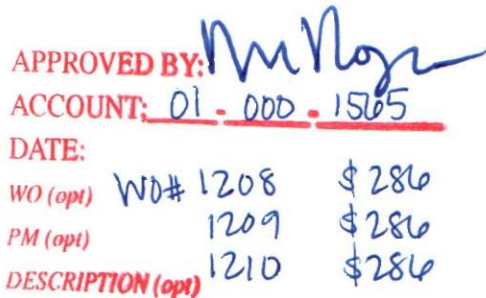 APPROVED BY:
ACCOUNT: 01 - 000 - 1565
DATE:
WO (opt) WO# 1208 $286
PM (opt) 1209 $286
DESCRIPTION (opt) 1210 $286